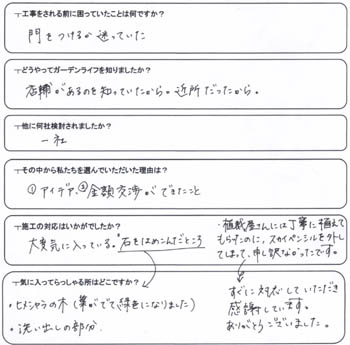 工事をされる前に困っていたことは何ですか？
門をつけるか迷っていた
どうやってガーデンライフを知りましたか？
店舗があるのを知っていたから。近所だったから。
他に何社検討されましたか？
一社
その中から私たちを選んでいただいた理由は？
①アイデア、②金額交渉ができたこと
施工の対応はいかがでしたか？
大変気に入っている。石をはめこんだところ
・植栽屋さんには丁寧に植えて
もらったのに、スカイペンシルを外し
てしまって、申し訳なかったです。
すぐに対応していただき
感謝しています。
ありがとうございました。
気に入ってらっしゃる所はどこですか？
・ヒメシャラの木（葉がでて緑色になりました）
・洗い出しの部分